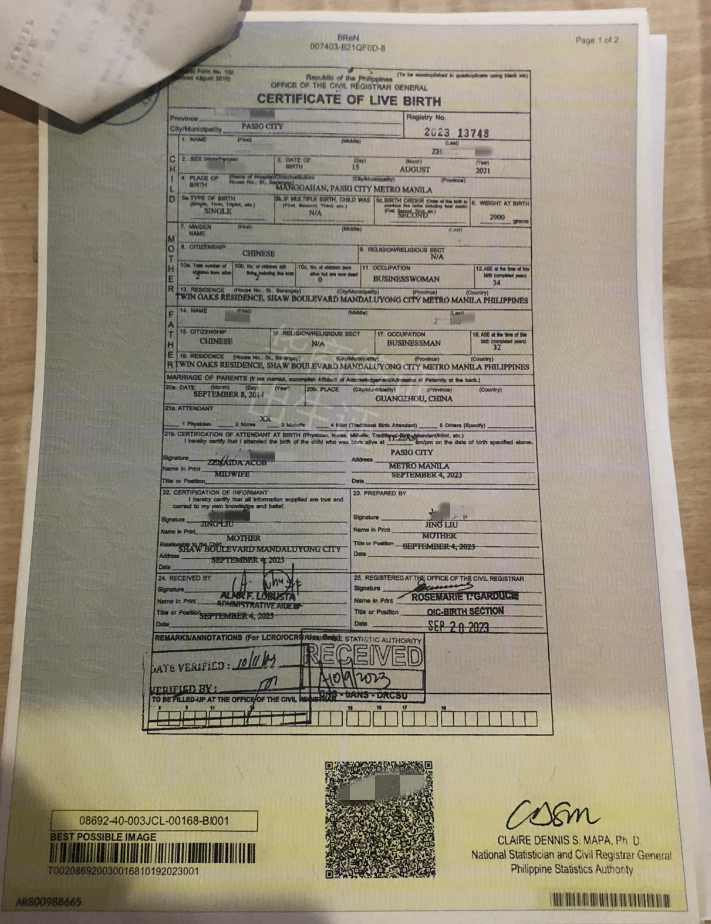 BReN
007403-B21QF0D-8
Page 1 of 2
Form No. 102
August 2016)
(To be accomplished in quadruplicate using black ink)
Republic of the Philippines
OFFICE OF THE CIVIL REGISTRAR GENERAL
CERTIFICATE OF LIVE BIRTH
Province
City/Municipality PASIG CITY
Registry No.
2023 13748
CHILD
1. NAME (First) (Middle) (Last)
ZH
2. SEX (Male/Female)
3. DATE OF BIRTH (Day) (Month) (Year)
15 AUGUST 2021
4. PLACE OF BIRTH (Name of Hospital/Clinic/Institution/ House No., St., Barangay) (City/Municipality) (Province)
MANGGAHAN, PASIG CITY METRO MANILA
5a. TYPE OF BIRTH (Single, Twin, Triplet, etc.)
SINGLE
5b. IF MULTIPLE BIRTH, CHILD WAS (First, Second, Third, etc.)
N/A
5c. BIRTH ORDER (Order of this birth to previous live births including fetal death) (First, Second, Third, etc.)
SECOND
6. WEIGHT AT BIRTH
2900 grams
MOTHER
7. MAIDEN NAME (First) (Middle) (Last)
8. CITIZENSHIP
CHINESE
9. RELIGION/RELIGIOUS SECT
N/A
10a. Total number of children born alive
2
10b. No. of children still living including this birth
2
10c. No. of children born alive but are now dead
0
11. OCCUPATION
BUSINESSWOMAN
12. AGE at the time of this birth (completed years)
34
13. RESIDENCE (House No., St., Barangay) (City/Municipality) (Province) (Country)
TWIN OAKS RESIDENCE, SHAW BOULEVARD MANDALUYONG CITY METRO MANILA PHILIPPINES
FATHER
14. NAME (First) (Middle) (Last)
15. CITIZENSHIP
CHINESE
16. RELIGION/RELIGIOUS SECT
N/A
17. OCCUPATION
BUSINESSMAN
18. AGE at the time of this birth (completed years)
32
19. RESIDENCE (House No., St., Barangay) (City/Municipality) (Province) (Country)
TWIN OAKS RESIDENCE, SHAW BOULEVARD MANDALUYONG CITY METRO MANILA PHILIPPINES
MARRIAGE OF PARENTS (If not married, accomplish Affidavit of Acknowledgement/Admission of Paternity at the back.)
20a. DATE (Month) (Day) (Year)
SEPTEMBER 8, 2014
20b. PLACE (City/Municipality) (Province) (Country)
GUANGZHOU, CHINA
21a. ATTENDANT
XX
1 Physician 2 Nurse 3 Midwife 4 Hilot (Traditional Birth Attendant) 5 Others (Specify)
21b. CERTIFICATION OF ATTENDANT AT BIRTH (Physician, Nurse, Midwife, Traditional Birth Attendant/Hilot, etc.)
I hereby certify that I attended the birth of the child who was born alive at am/pm on the date of birth specified above.
Signature
Name in Print ZENAIDA ACOB
Title or Position MIDWIFE
PASIG CITY
Address METRO MANILA
Date SEPTEMBER 4, 2023
22. CERTIFICATION OF INFORMANT
I hereby certify that all information supplied are true and
correct to my own knowledge and belief.
Signature
Name in Print JING LIU
Relationship to the Child MOTHER
Address SHAW BOULEVARD MANDALUYONG CITY
Date SEPTEMBER 4, 2023
23. PREPARED BY
Signature
Name in Print JING LIU
Title or Position MOTHER
Date SEPTEMBER 4, 2023
24. RECEIVED BY
Signature
Name in Print F. LOBUSTA
Title or Position ADMINISTRATIVE AIDE
Date SEPTEMBER 4, 2023
25. REGISTERED AT THE OFFICE OF THE CIVIL REGISTRAR
Signature
Name in Print ROSEMARIE T. GARDUCE
Title or Position OIC-BIRTH SECTION
Date SEP 20 2023
REMARKS/ANNOTATIONS (For LCRO/OCRG Use Only)
STATISTIC AUTHORITY
RECEIVED
10/9/2023
DATE VERIFIED:
VERIFIED BY:
TO BE FILLED-UP AT THE OFFICE OF THE CIVIL REGISTRAR
08692-40-003JCL-00168-BI001
BEST POSSIBLE IMAGE
T002086920030016810192023001
CLAIRE DENNIS S. MAPA, Ph. D.
National Statistician and Civil Registrar General
Philippine Statistics Authority
AR800988665